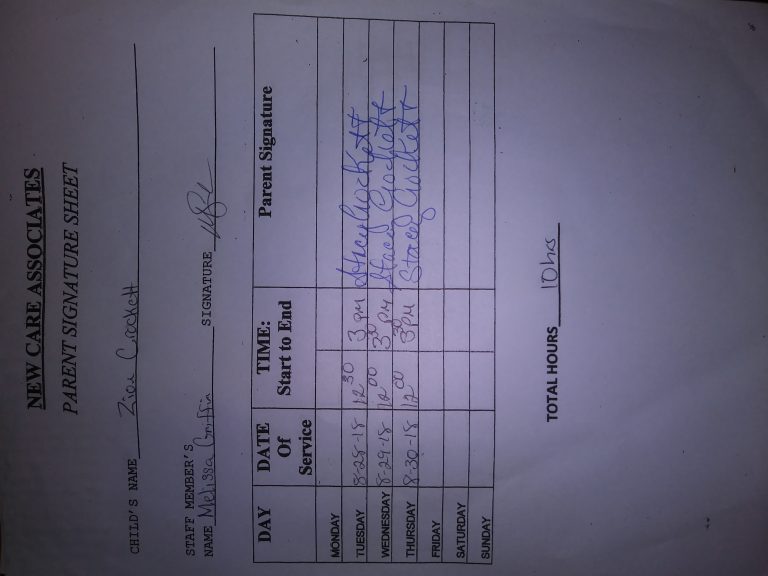 NEW CARE ASSOCIATES
PARENT SIGNATURE SHEET
CHILD'S NAME Zion Crockett
STAFF MEMBER'S
NAME Melissa Griffin SIGNATURE
DAY DATE Of Service TIME: Start to End Parent Signature
MONDAY
TUESDAY 8-28-18 12 30 3 pm Stacy Crockett
WEDNESDAY 8-29-18 12 00 3 30 PM Stacey Crockett
THURSDAY 8-30-18 12 00 3 30 PM Stacey Crockett
FRIDAY
SATURDAY
SUNDAY
TOTAL HOURS 10 hrs